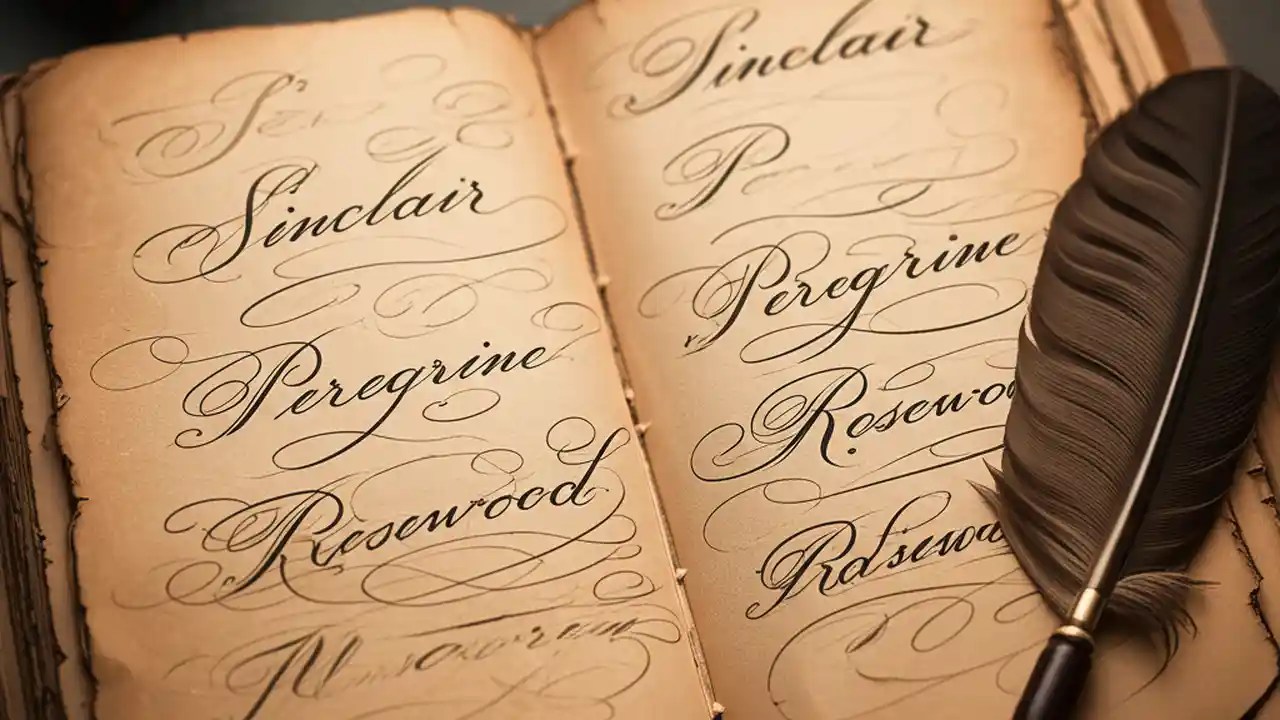 Sinclair
Peregrine
Rosewood
Sinclair
P
Peregrine
Rosewoo